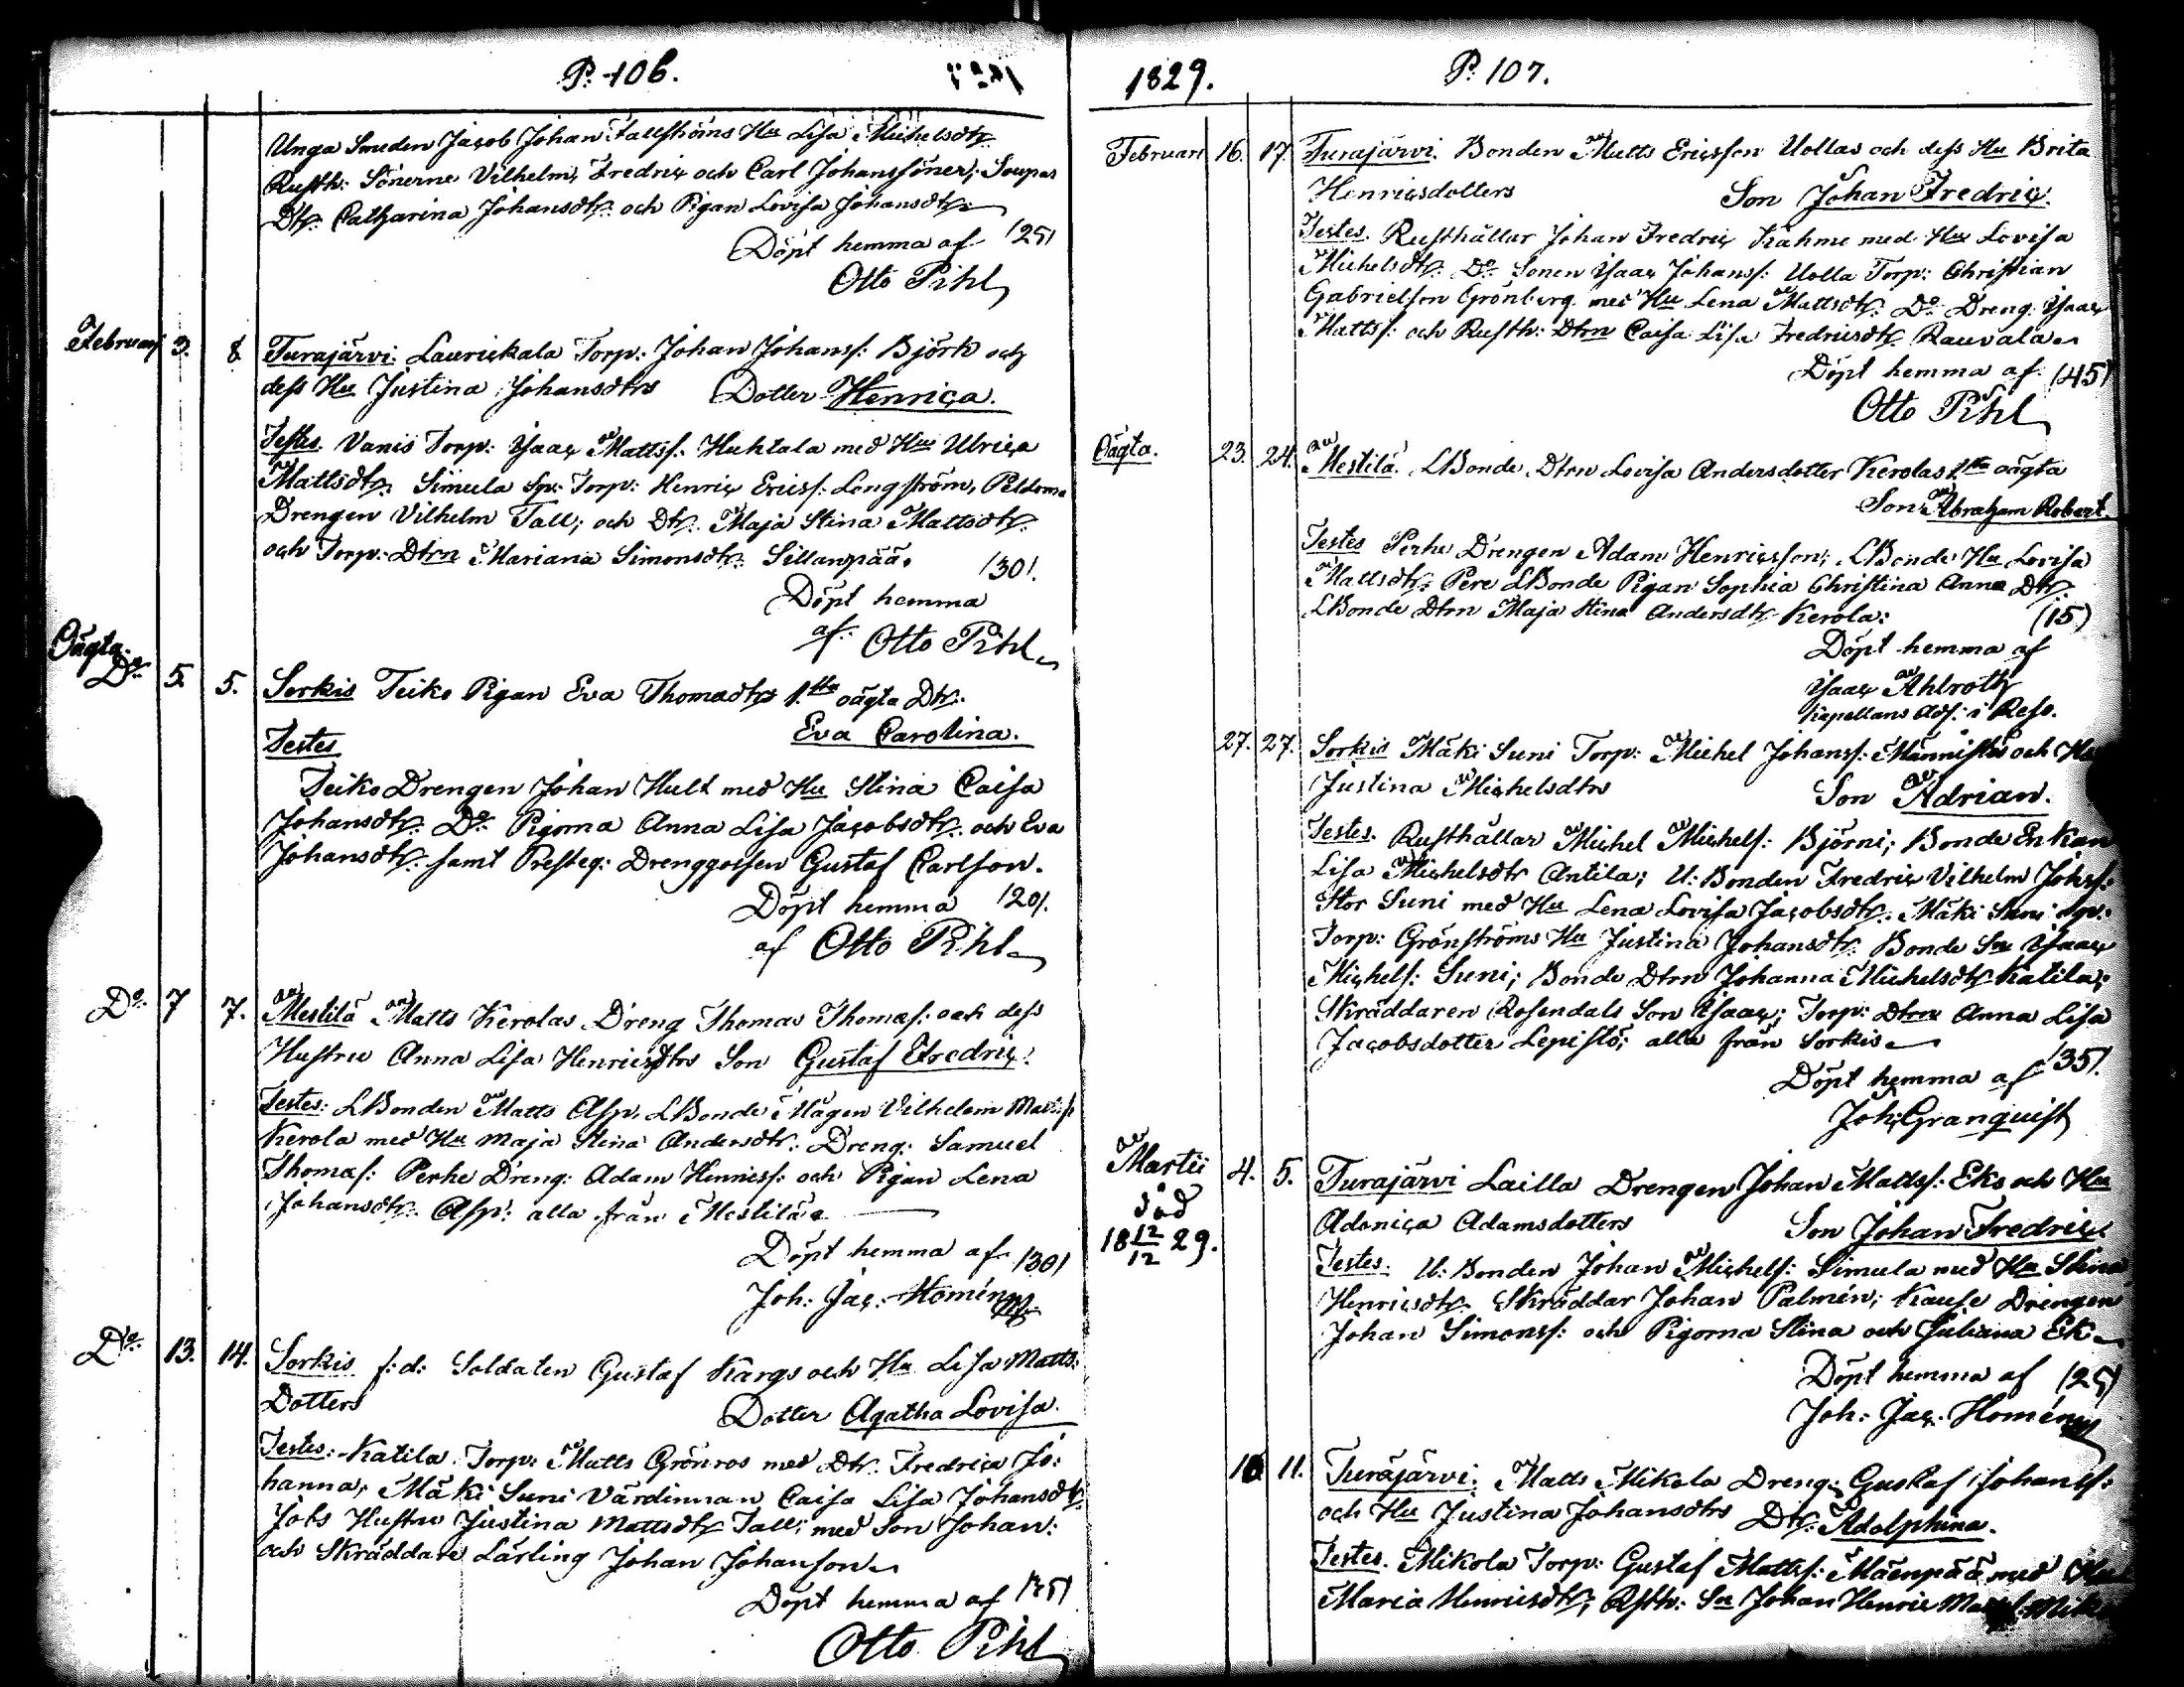 P. 106.
Unga Smeden Jacob Johan Fallströms Hu Lisa Michelsdtr.
Rusth: Sönerne Vilhelm, Fredric och Carl Johanssöner; Soupas
Dtr. Catharina Johansdtr. och Pigan Lovisa Johansdtr.
Döpt hemma af /25/
Otto Pihl
Februari 3. 8 Turajärvi. Laurickala Torp: Johan Johanss: Björk och
dess Hu Justina Johansdtrs Dotter Henrica.
Testes. Vanis Torp: Isaac Mattss: Huhtala med Hu Ulrica
Mattsdtr. Simula Sp: Torp: Henric Ericss: Longström,
Drengen Vilhelm Tall; och Dtr. Maja Stina Mattsdtr.
och Torp: Dtrn Mariana Simonsdtr. Sillanpää. /30/.
Döpt hemma
af: Otto Pihl
Oägta.
Do 5. 5. Sorkis Teiko Pigan Eva Thomasdtrs 1.sta oägta Dtr.
Eva Carolina.
Testes
Teiko Drengen Johan Hult med Hu Stina Caisa
Johansdtr. Do Pigorna Anna Lisa Jacobsdtr. och Eva
Johansdtr. samt Presteg: Drenggossen Gustaf Carlson.
Döpt hemma /20/.
af Otto Pihl
Do 7 7. Mestilä Matts Kerolas Dreng Thomas Thomas: och dess
Hustru Anna Lisa Henricsdtrs Son Gustaf Fredric.
Testes: LBonden Matts Asp. LBonde Mågen Vilhelm Mattss:
Kerola med Hu Maja Stina Andersdtr. Dreng: Samuel
Thomas: Perhe Dreng: Adam Henricss: och Pigan Lena
Johansdtr. Asp: alla från Mestilä
Döpt hemma af /30/
Joh: Jac: Homén
Do 13. 14. Sorkis f:d: Soldaten Gustaf Kargs och Hu Lisa Matts:
Dotters Dotter Agatha Lovisa.
Testes: Katila Torp: Matts Grönros med Dtr. Fredrica Jo:
hanna, Mäki Suni Värdinnan Caisa Lisa Johansdtr.
Jobs Hustru Justina Mattsdtr Tall; med Son Johan:
och Skräddare Lärling Johan Johanson
Döpt hemma af
Otto Pihl
1829. P. 107.
Februari 16. 17. Turajärvi. Bonden Matts Ericsson Uollas och dess Hu Brita
Henricsdotters Son Johan Fredric.
Testes. Rusthållar Johan Fredric Kahme med Hu Lovisa
Michelsdtr. Do Sonen Isaac Johanss: Uolla Torp: Christian
Gabrielson Grönberg med Hu Lena Mattsdtr. Do Dreng Isaac
Mattss: och Rusth: Dtrn Caisa Lisa Fredricsdtr. Rauvala
Döpt hemma af /45/
Otto Pihl
Oägta. 23. 24. Mestilä. LBonde Dtrn Lovisa Andersdotter Kerolas 1.sta oägta
Son Abraham Robert.
Testes Perhe Drengen Adam Henricsson; LBonde Hu Lovisa
Mattsdtr. Pere LBonde Pigan Sophia Christina Anna Dtr.
LBonde Dtrn Maja Stina Andersdtr Kerola: (15)
Döpt hemma af
Isaac Ahlroth
Kapellans Adj: i Reso.
27. 27. Sorkis Mäki Suni Torp: Michel Johanss: Männistös och Hu
Justina Michelsdtrs Son Adrian.
Testes. Rusthållar Michel Michels: Björni; Bonde Enkan
Lisa Michelsdtr Antila; U: Bonden Fredric Vilhelm Johss:
Stor Suni med Hu Lena Lovisa Jacobsdtr. Mäki Suni
Torp: Grönströms Hu Justina Johansdtr. Bonde Sn Isaac
Michels: Suni; Bonde Dtrn Johanna Michelsdtr Katila;
Skräddaren Rosendals Son Isaac; Torp: Dtrn Anna Lisa
Jacobsdotter Lepistö; alla från Sorkis
Döpt hemma af /35/.
Joh: Granquist
Martii 4. 5. Turajärvi Lailla Drengen Johan Mattss: Eks och Hu
död
18 12/12 29.
Adonica Adamsdotters Son Johan Fredric.
Testes. U: Bonden Johan Michels: Simula med Hu Stina
Henricsdtr. Skräddar Johan Palmén; Kause Drengen
Johan Simonss: och Pigorna Stina och Juliana Ek
Döpt hemma af /25/
Joh: Jac: Homén
10 11. Turajärvi. Matts Mikola Dreng: Gustaf Johanss:
och Hu Justina Johansdtrs Dtr. Adolphina.
Testes. Mikola Torp: Gustaf Mattss: Mäenpää med Hu
Maria Henricsdtr; Rsth: Sn Johan Henric